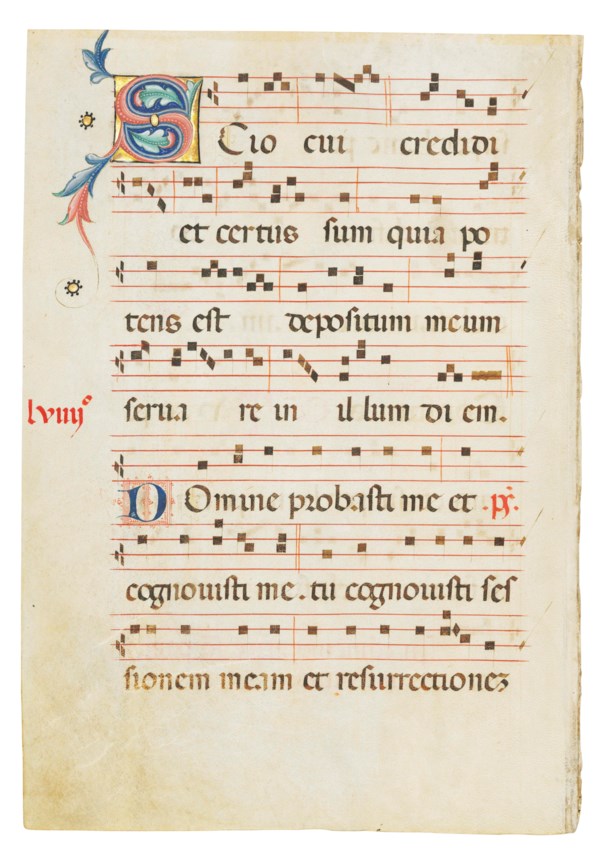 Scio cui credidi
et certus sum quia po
tens est depositum meum
serua re in il lum di em.
lviiij°
Domine probasti me et .ps.
cognouisti me. tu cognouisti ses
sionem meam et resurrectionez